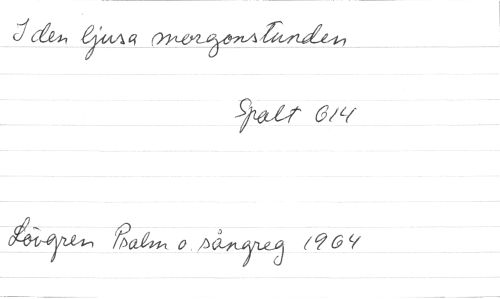 I den ljusa morgonstunden
Spalt 614
Lövgren Psalm o. sångreg 1964